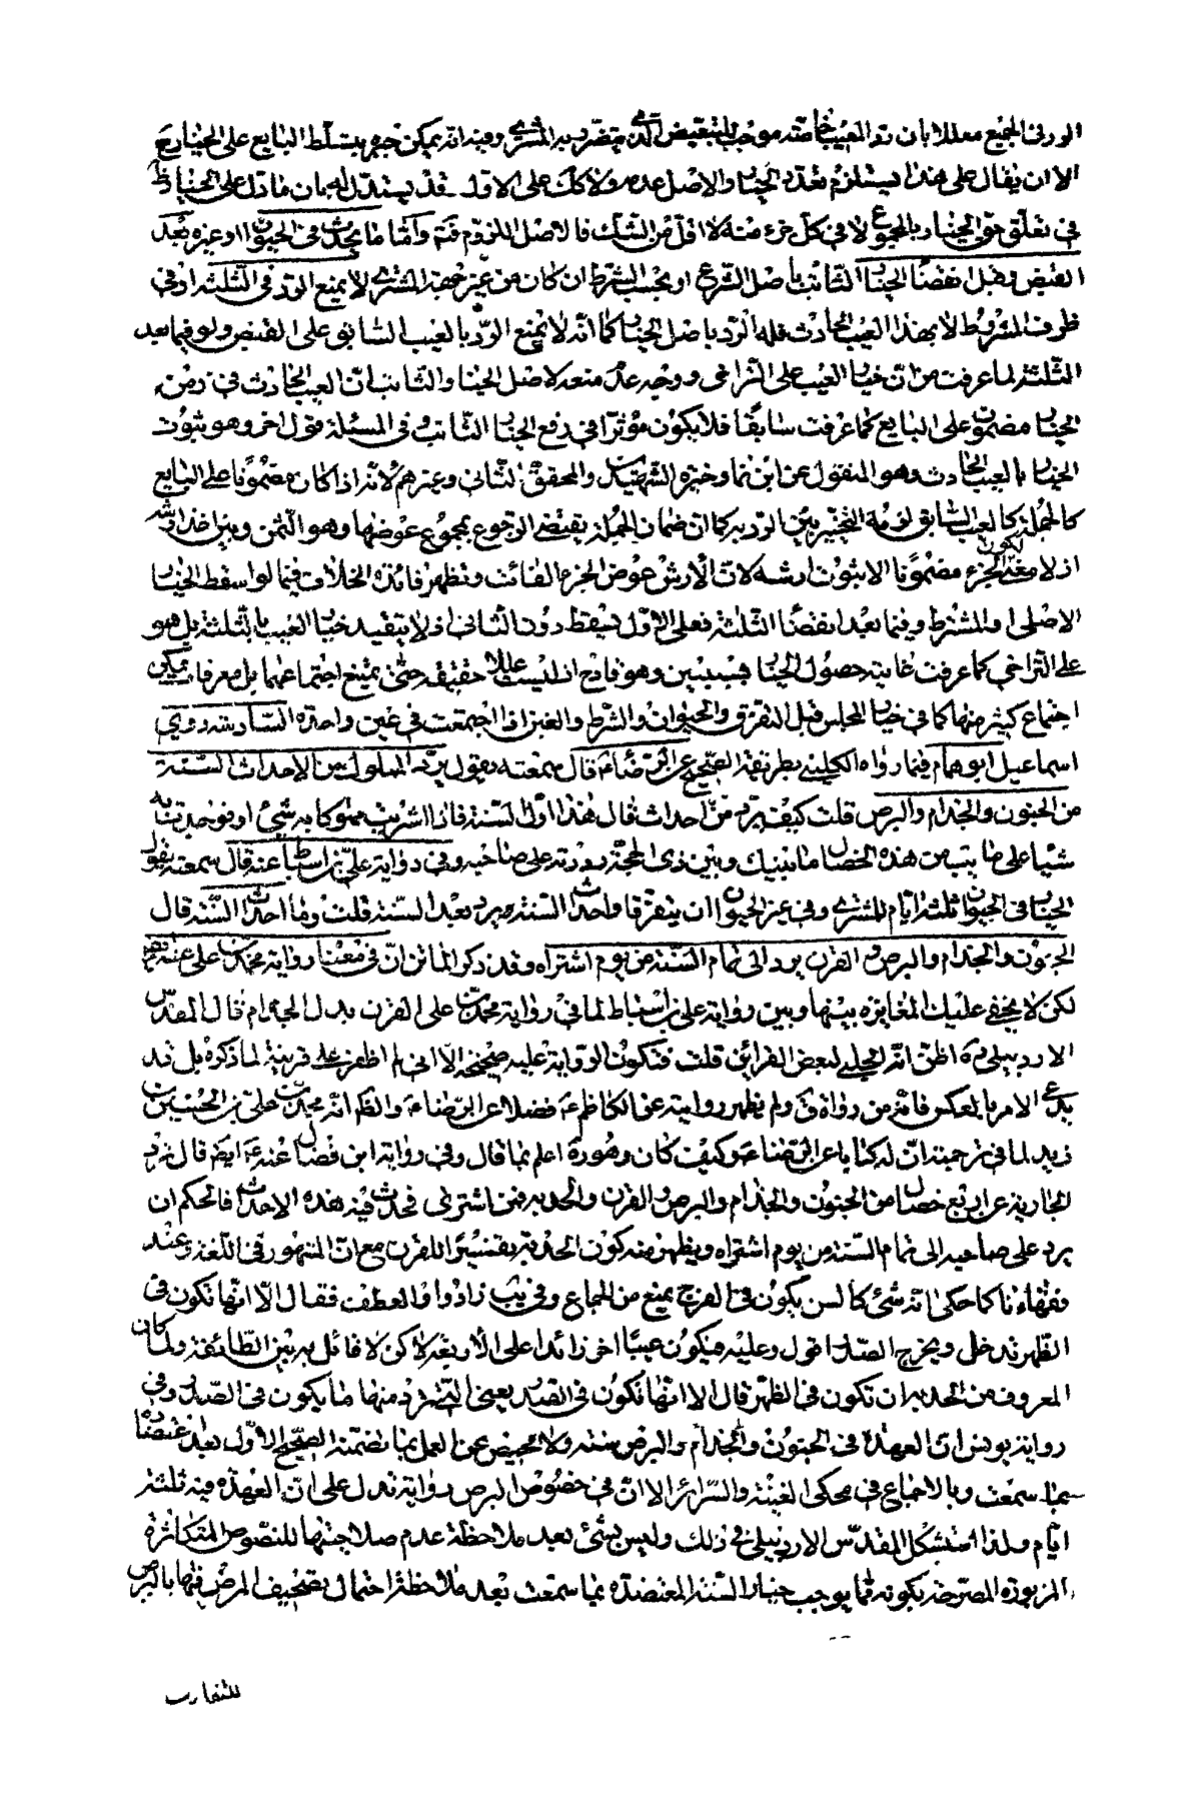 الورثى الجميع معللا بان رد المعيب خاصة موجب للتبعيض الذى يتضرر به المشترى وفيه انه يمكن جبره بتسلط البايع على الخيار ح
الا ان يقال على هذا يستلزم تعدد الخيار والاصل عدمه ولا كك على الاول قد يستدل له بان ما دل على الخيار ظ
فى تعلق حق الخيار بالمجموع لا فى كل جزء منه لا اقل من الشك فالاصل اللزوم فتم وامّا ما يحدث فى الحيوان او غيره بعد
القبض وقبل انقضاء الخيار الثابت باصل الشرع او بحسب الشرط ان كان من غير جهة المشترى لا يمنع الرد فى الثلثة او فى
ظرف الشرط لا بهذا العيب الحادث فله الرد باصل الخيار كما انه لا يمنع الردّ بالعيب السابق على القبض ولو فيما بعد
الثلثة لما عرفت من ان خيار العيب على التراخى ووجه عدم منعه لاصل الخيار والثابت ان العيب الحادث فى زمن
الخيار مضمون على البايع كما عرفت سابقًا فلا يكون مؤثرا فى رفع الخيار الثابت وفى المسئلة قول اخر وهو ثبوت
الخيار بالعيب الحادث وهو المنقول عن ابن نما وخيرة الشهيدين والمحقق الثانى وغيرهم لانه اذا كان مضمونا على البايع
كالجملة كالعيب السابق لزمه التخيير بين الرد به كما ان ضمان الجملة يقتضى الرجوع بمجموع عوضها وهو الثمن وبين اخذ ارشه
اذ لا معنى لكون الجزء مضمونا الا ثبوت ارشه لان الارش عوض الجزء الفائت وتظهر فائدة الخلاف فيما لو اسقط الخيار
الاصلى او المشترط وفيما بعد انقضاء الثلثة فعلى الاول يسقط دون الثانى اذ لا يتقيد خيار العيب بالثلثة بل هو
على التراخى كما عرفت غايته حصول الخيار بسببين وهو غير قادح اذ ليست عللا حقيقة حتى يمتنع اجتماعهما بل معرفات يمكن
اجتماع كثير منها كما فى خيار المجلس قبل التفرق والحيوان والشرط والغبن اذا اجتمعت فى عين واحدة السادسة روى
اسماعيل ابو همام فيما رواه الكلينى بطريقه الصحيح عن الرضاء قال سمعته يقول يرد المملوك من الاحداث السنة
من الجنون والجذام والبرص قلت كيف يرد من احداث قال هذا اول السنة فاذا اشتريت مملوكا به شىء او فوجدت به
شيئا على ما بيّن من هذه الخصال ما بينك وبين ذى الحجة رددته على صاحبه وفى رواية على بن اسباط عنه قال سمعته يقول
الخيار فى الحيوان ثلثة ايام للمشترى وفى غير الحيوان ان يتفرقا واحداث السنة يرد بعد السنة قلت وما احداث السنة قال
الجنون والجذام والبرص والقرن يرد الى تمام السنة من يوم اشتراه وقد ذكر الماتن ان فى معناها رواية محمد بن على عنه
لكن لا يخفى عليك المغايرة بينها وبين رواية على بن اسباط لما فى رواية محمد بن على القرن بدل الجذام قال المقدس
الاردبيلى ره اظن انه الحلبى لبعض القرائن قلت فتكون الرواية عليه صحيحة الا انى لم اظفر على قرينة لما ذكره بل قد
يدعى الامر بالعكس فانه من رواة ق ولم يظهر روايته عن الكاظم فضلا عن الرضاء والظم انه محمد بن على بن الحسين بن
زيد لما فى ترجمته ان له كتابا عن الرضا وكيف كان وهو ره اعلم بما قال وفى رواية ابن فضال عنه ايضا قال ترد
الجارية عن اربع خصال من الجنون والجذام والبرص والقرن والحدبه فمن اشترى فحدث فيه هذه الاحداث فالحكم ان
يرد على صاحبه الى تمام السنة من يوم اشتراه ويظهر منه كون الحدبة تفسيرًا للقرن مع ان المشهور فى اللغة وعند
فقهاءنا كما حكى انه شىء كالسن يكون فى الفرج يمنع من الجماع وفى يب زاد واو العطف فقال الا انها تكون فى
الظهر تدخل ويخرج الصدر اقول وعليه فيكون عيبا اخر زائدا على الاربعة لكن لا قائل به بين الطائفة ولما كان
المعروف من الحدبه ان تكون فى الظهر قال الا انها تكون فى الصدر يعنى التى ترد منها ما يكون فى الصدر وفى
رواية يونس ان العهدة فى الجنون والجذام والبرص سنة ولا محيص عن العمل بما تضمنه الصحيح الاول بعد اعتضاده
بما سمعت وبالاجماع فى محكى الغنية والسرائر الا ان فى خصوص البرص رواية تدل على ان العهدة فيه ثلثة
ايام ولذا استشكل المقدس الاردبيلى فى ذلك وليس بشىء بعد ملاحظة عدم صلاحيتها للنصوص المتكاثرة
المزبورة المصرحة بكونه مما يوجب خيار السنة المعتضدة بما سمعت بعد ملاحظة احتمال تصحيف المرض فيها بالبرص
للتقارب